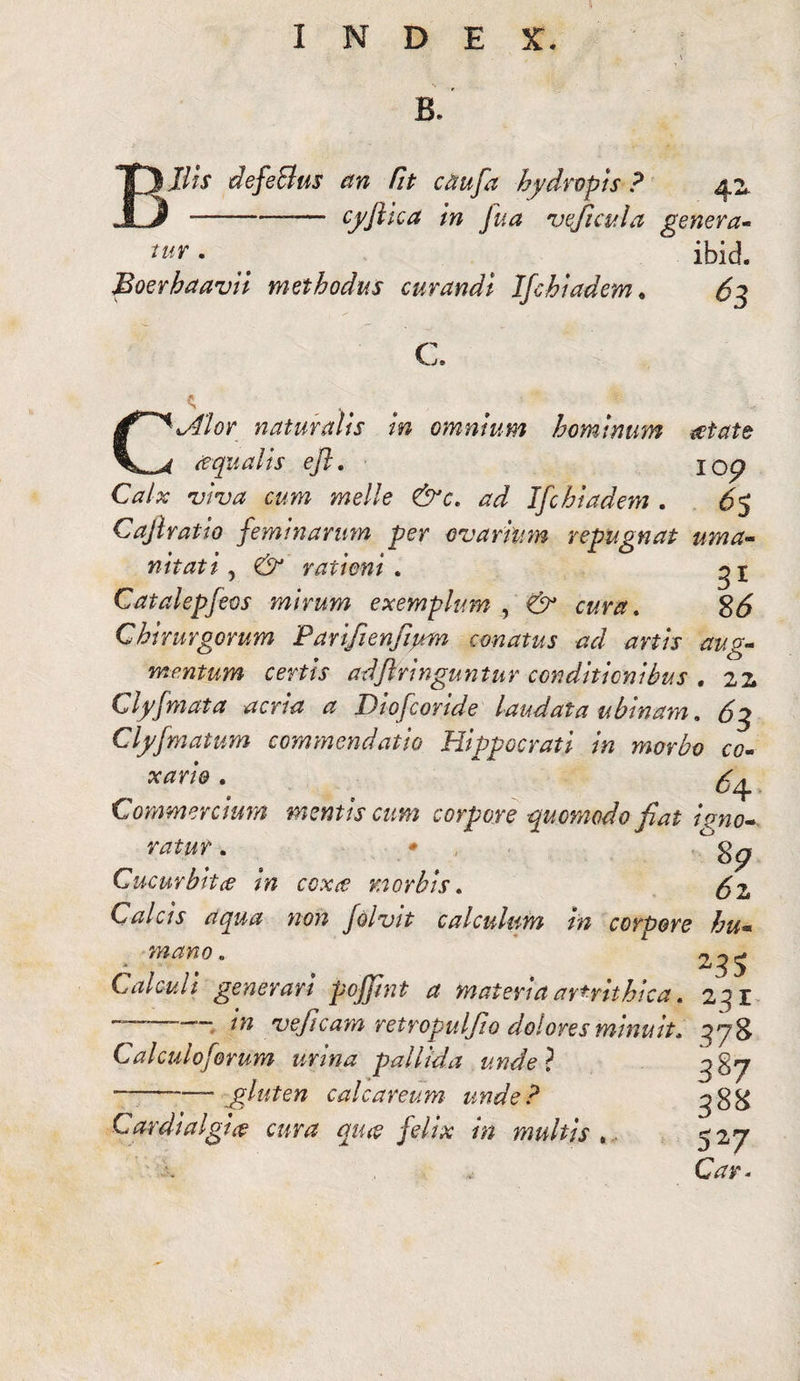 INDEX.
B.
BIlis defectus an ſit cauſa hydropis ? 42
——— cyſtica in ſua veſicula genera-
tur . ibid.
Boerhaavii methodus curandi Iſchiadem . 63
C.
CAlor naturalis in omnium hominum ætate
æqualis eſt . 109
Calx viva cum melle &c. ad Iſchiadem . 65
Caſtratio feminarum per ovarium repugnat uma-
nitati , & rationi . 31
Catalepſeos mirum exemplum , & cura . 86
Chirurgorum Pariſienſium conatus ad artis aug-
mentum certis adſtringuntur conditionibus . 22
Clyſmata acria a Dioſcoride laudata ubinam . 63
Clyſmatum commendatio Hippocrati in morbo co-
xario . 64
Commercium mentis cum corpore quomodo fiat igno-
ratur . 89
Cucurbitæ in coxæ morbis . 62
Calcis aqua non ſolvit calculum in corpore hu-
mano . 235
Calculi generari poſſint a materia artrithica . 231
——— in veſicam retropulſio dolores minuit . 378
Calculoſorum urina pallida unde ? 387
——— gluten calcareum unde ? 388
Cardialgiæ cura quæ felix in multis . 527
Car-